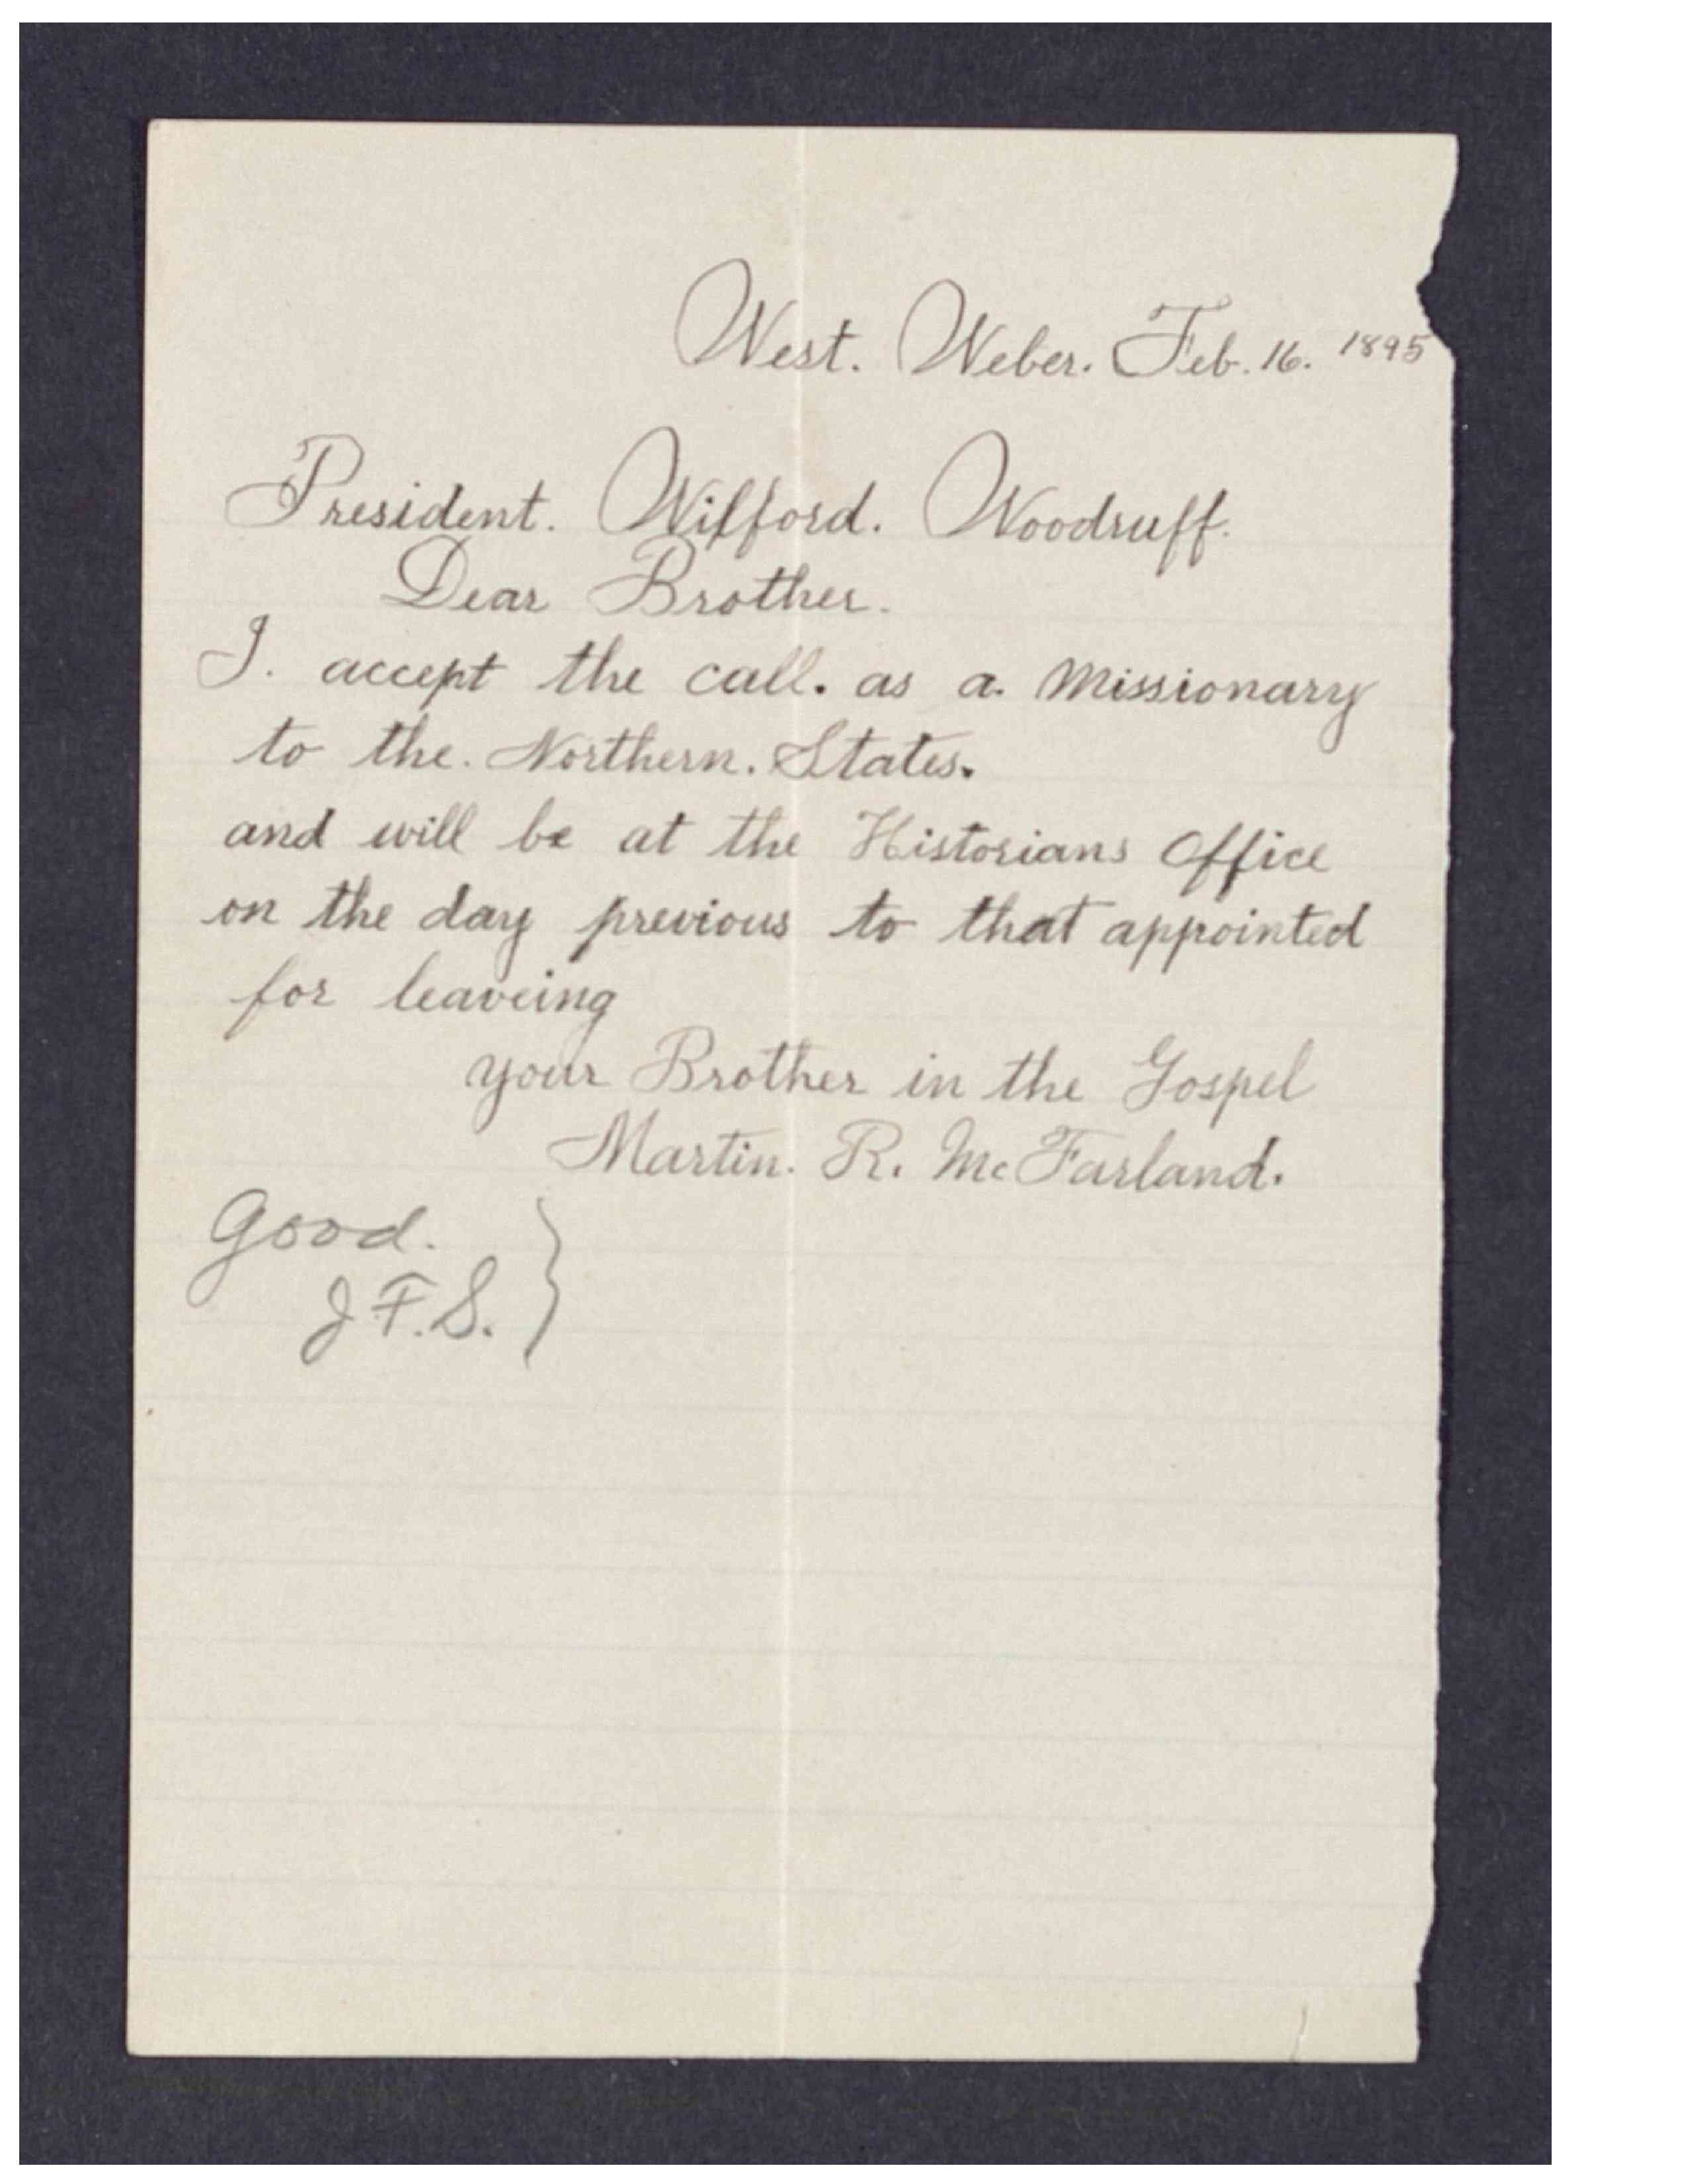 West. Weber. Feb. 16. 1895
President. Wilford. Woodruff.
Dear Brother.
I. accept the call. as a. Missionary
to the. Northern. States.
and will be at the Historians Office
on the day previous to that appointed
for leaveing
your Brother in the Gospel
Martin. R. McFarland.
Good.
J F. S. }